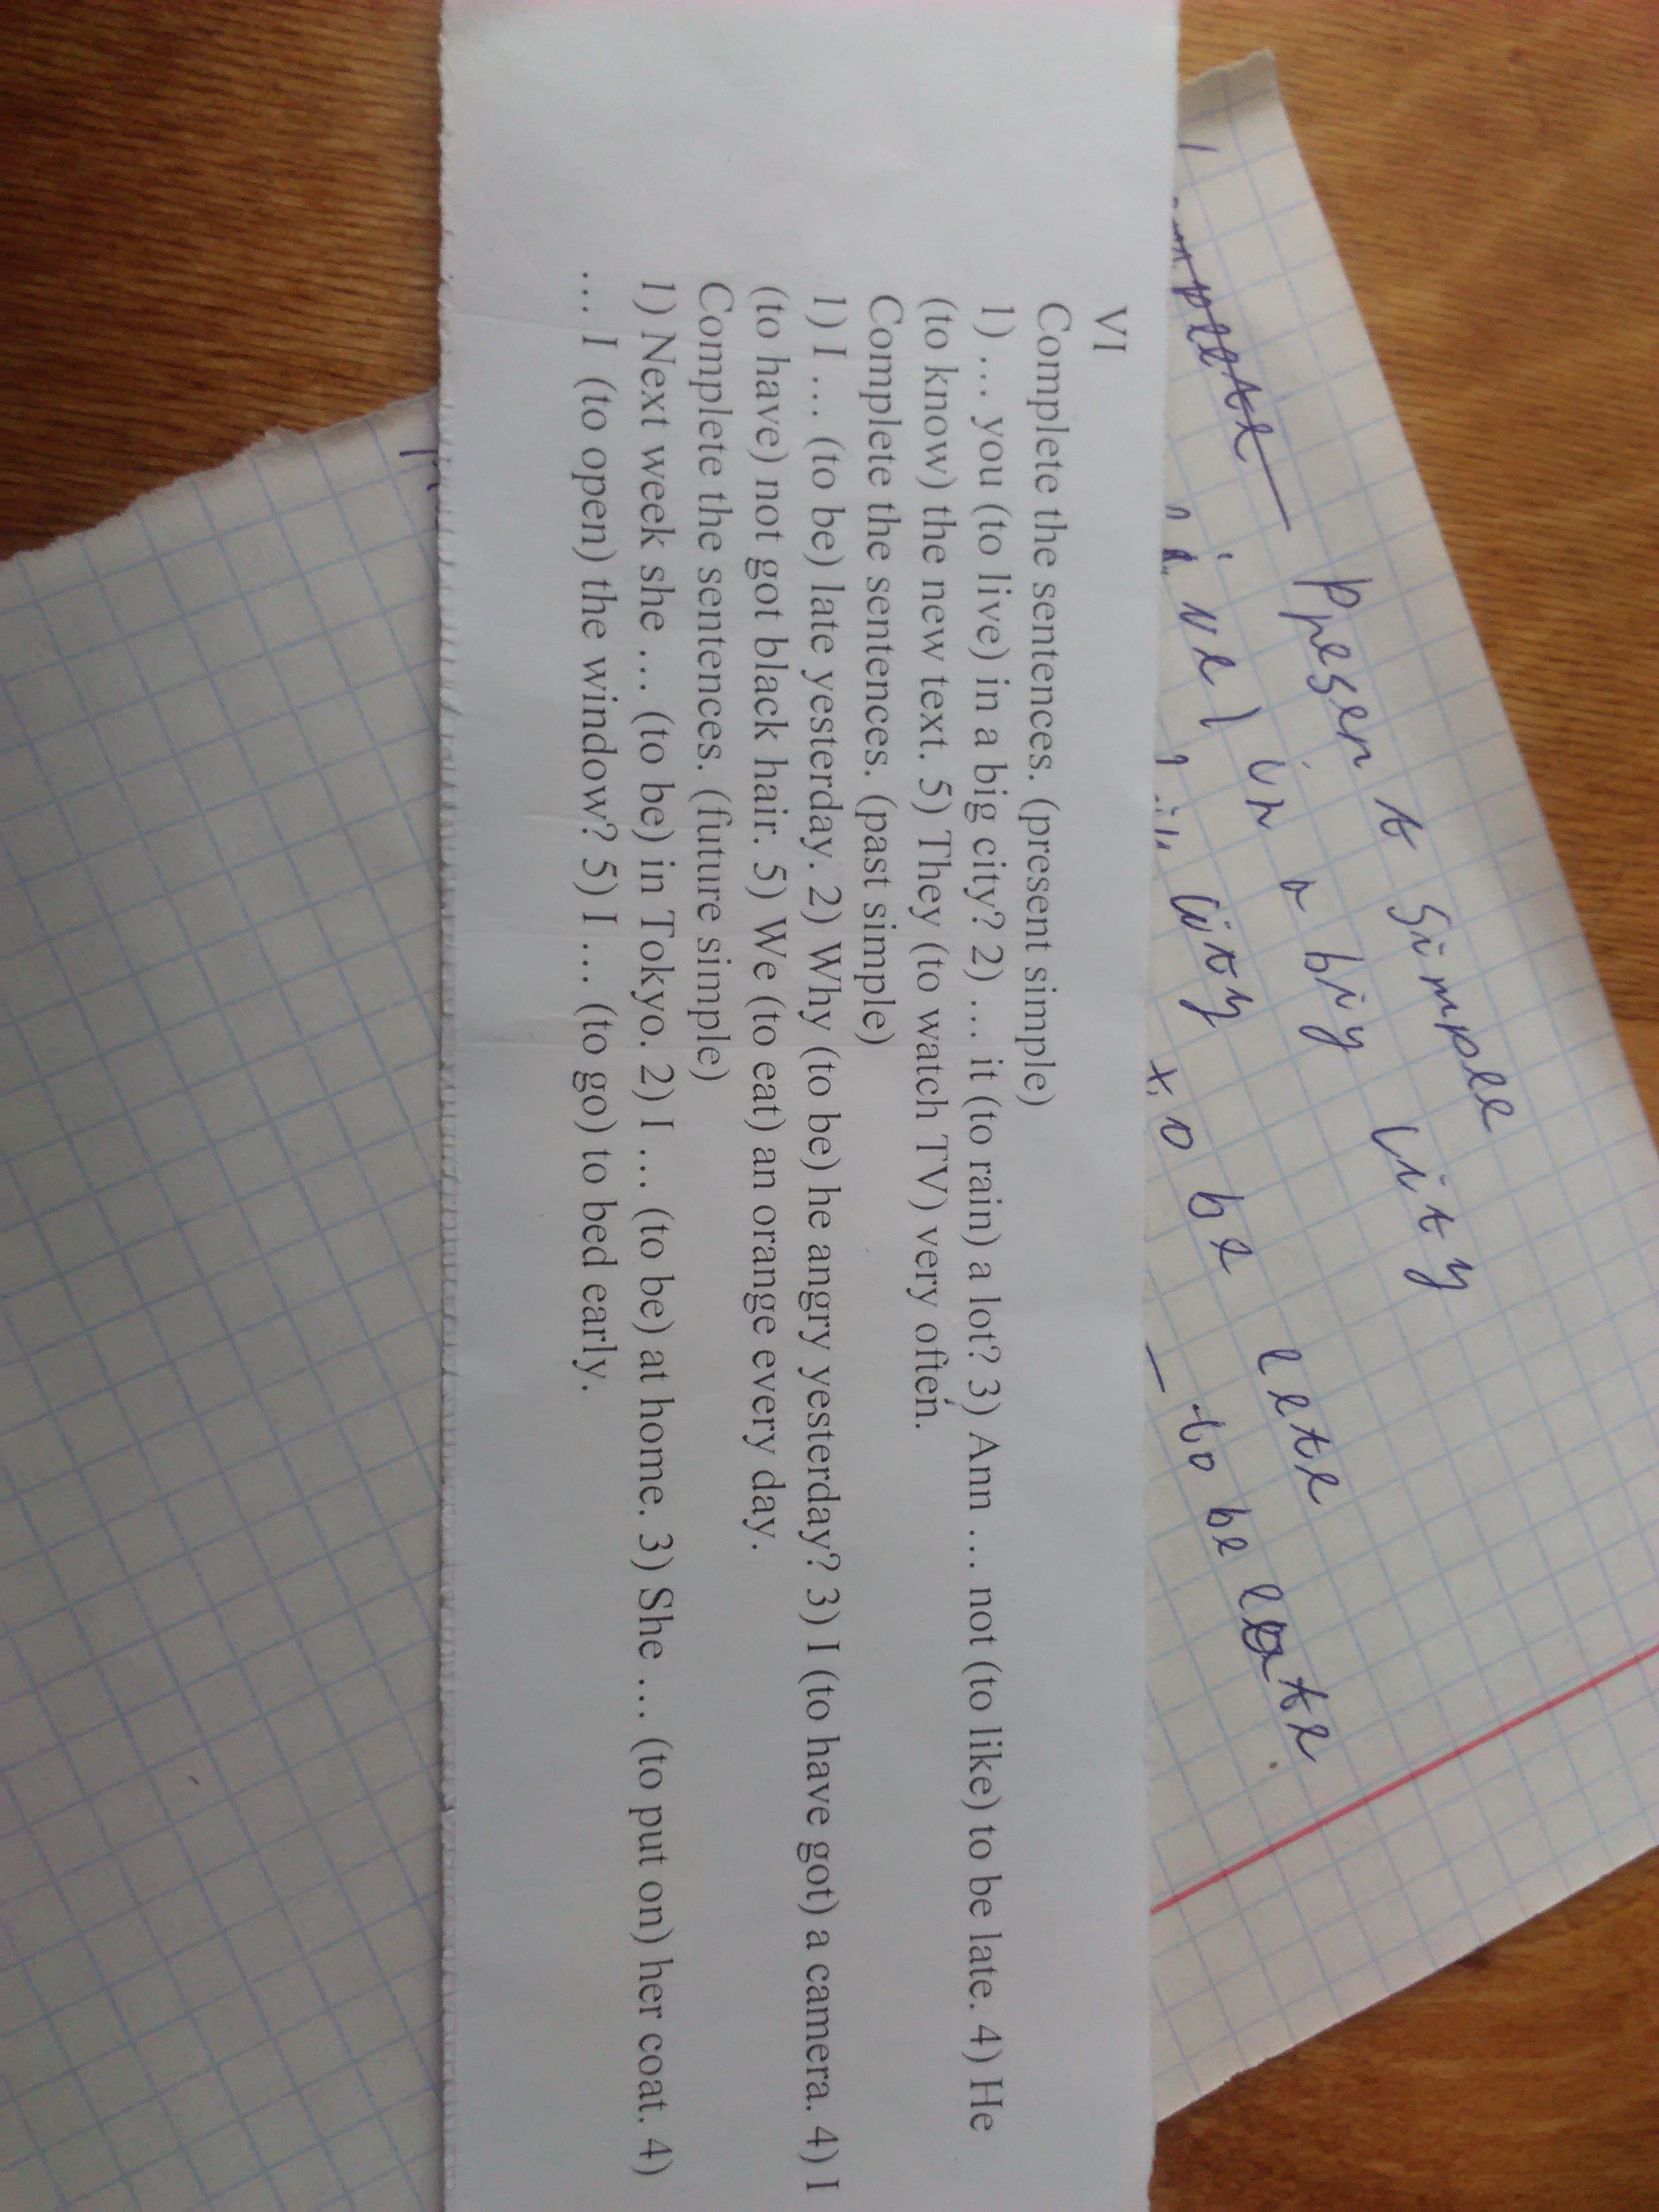 Present simple
in a big city
late
city
be
to be late
VI
Complete the sentences. (present simple)
1) … you (to live) in a big city? 2) … it (to rain) a lot? 3) Ann … not (to like) to be late. 4) He
(to know) the new text. 5) They (to watch TV) very often.
Complete the sentences. (past simple)
1) I … (to be) late yesterday. 2) Why (to be) he angry yesterday? 3) I (to have got) a camera. 4) I
(to have) not got black hair. 5) We (to eat) an orange every day.
Complete the sentences. (future simple)
1) Next week she … (to be) in Tokyo. 2) I … (to be) at home. 3) She … (to put on) her coat. 4)
… I (to open) the window? 5) I … (to go) to bed early.